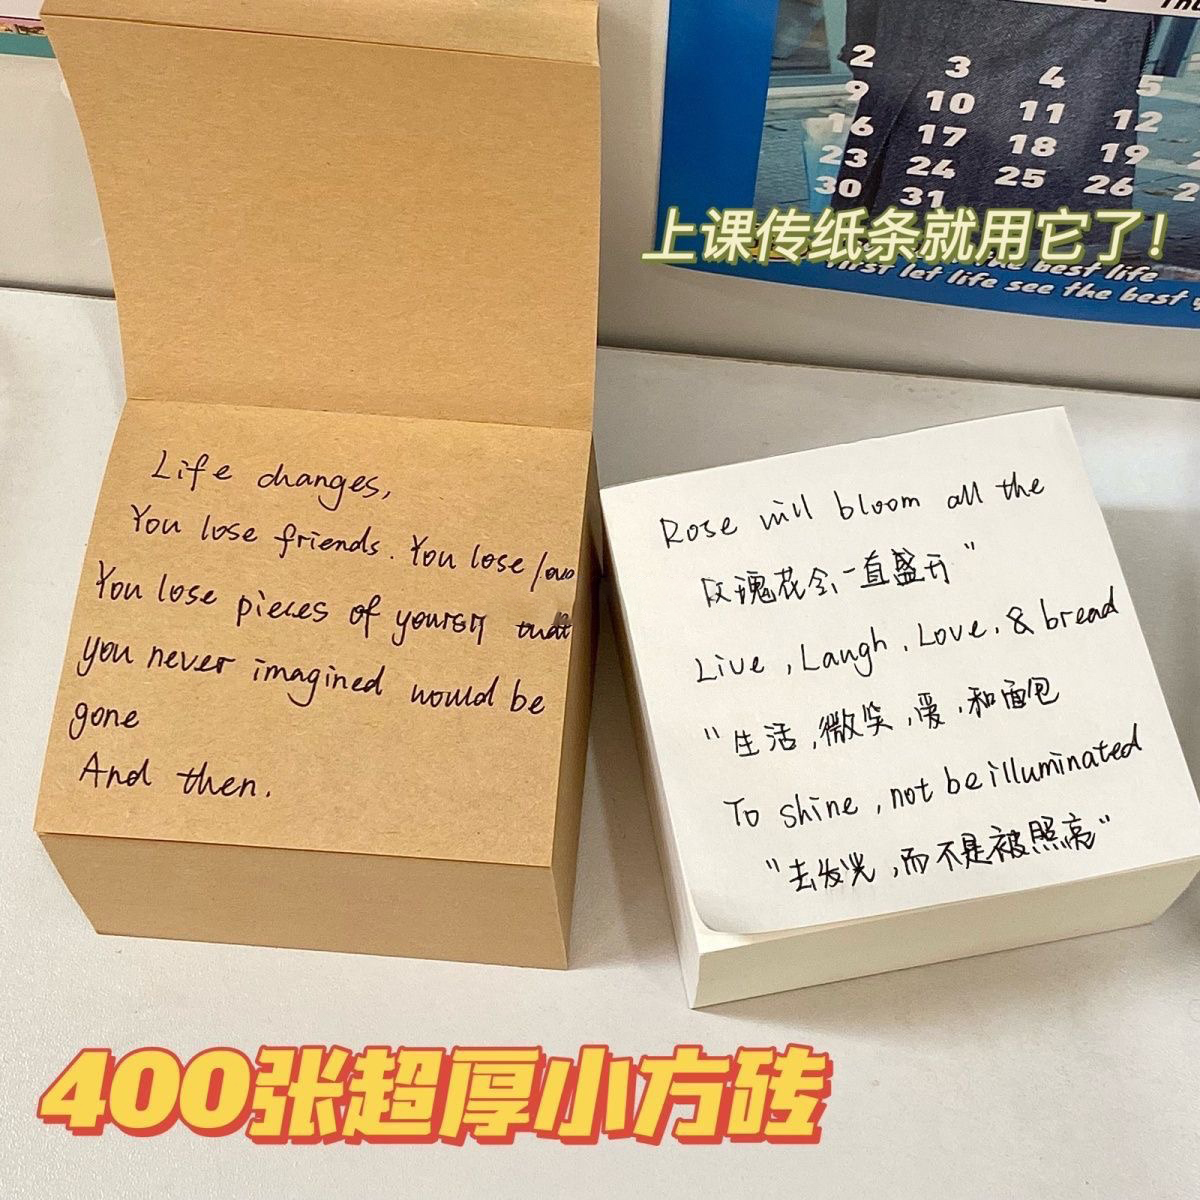 2 3 4 5
9 10 11 12
16 17 18 19
23 24 25 26
30 31
上课传纸条就用它了!
the best life
first let life see the best
Life changes,
You lose friends. You lose love
You lose pieces of yourself that
you never imagined would be
gone
And then.
Rose will bloom all the
玫瑰花会一直盛开"
Live, Laugh, Love, & bread
"生活,微笑,爱,和面包
To shine, not be illuminated
"去发光,而不是被照亮"
400张超厚小方砖